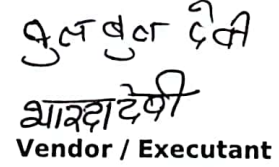 बुल बुल देवी
शारदा देवी
Vendor / Executant